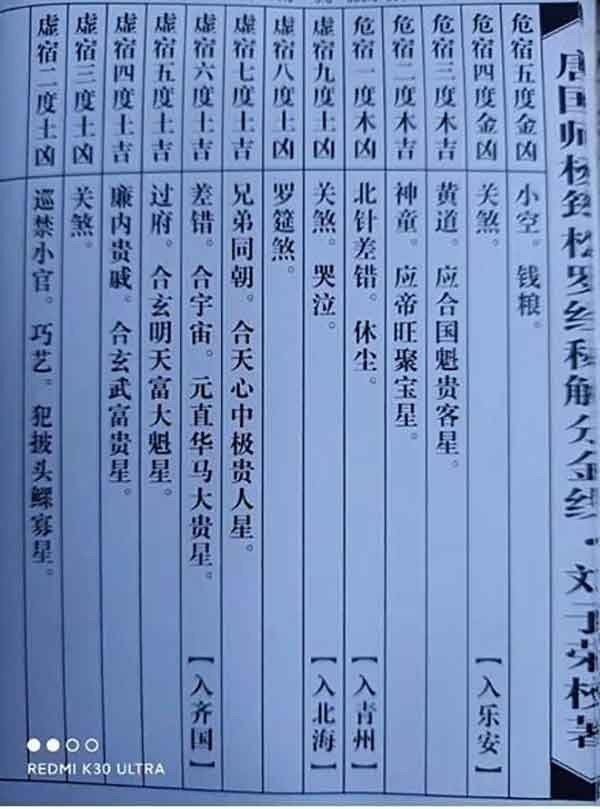 唐国师杨筠松罗经秘解分金线·刘子荣校著
危宿五度金凶 小空。钱粮。
危宿四度金凶 关煞。【入乐安】
危宿三度木吉 黄道。应合国魁贵客星。
危宿二度木吉 神童。应帝旺聚宝星。
危宿一度木凶 北针差错。休尘。【入青州】
虚宿九度土凶 关煞。哭泣。【入北海】
虚宿八度土凶 罗筵煞。
虚宿七度土吉 兄弟同朝。合天心中极贵人星。
虚宿六度土吉 差错。合宇宙。元直华马大贵星。【入齐国】
虚宿五度土吉 过府。合玄明天富大魁星。
虚宿四度土吉 廉内贵戚。合玄武富贵星。
虚宿三度土凶 关煞。
虚宿二度土凶 巡禁小官。巧艺。犯披头鳏寡星。
REDMI K30 ULTRA